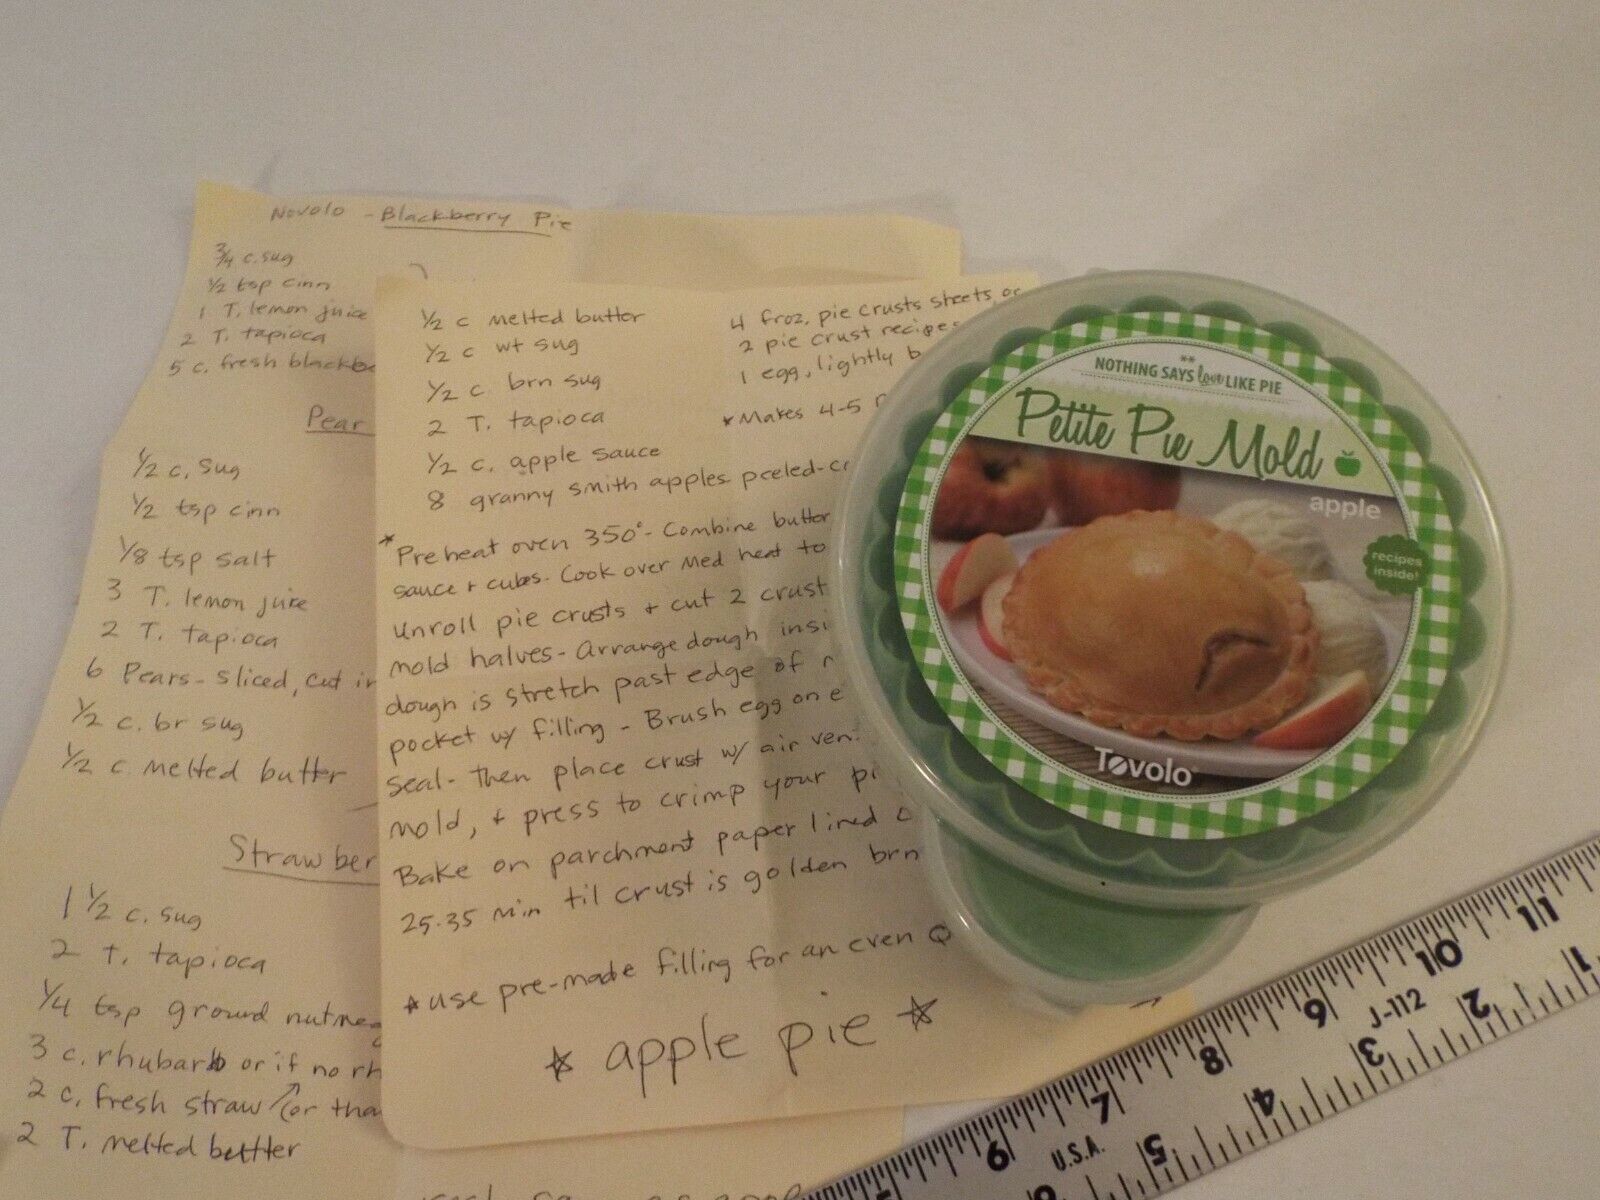 Novolo - Blackberry Pie
3/4 c. sug
1/2 tsp cinn
1 T. lemon juice
2 T. tapioca
5 c. fresh blackbe
Pear
1/2 c. sug
1/2 tsp cinn
1/8 tsp salt
3 T. lemon juice
2 T. tapioca
6 Pears - sliced, cut in
1/2 c. br sug
1/2 c. melted butter
Strawber
1 1/2 c. sug
2 T. tapioca
1/4 tsp ground nutmeg
3 c. rhubarb or if no rh
2 c. fresh straw (or tha
2 T. melted buttter
1/2 c melted butter
1/2 c wt sug
1/2 c. brn sug
2 T. tapioca
1/2 c. apple sauce
8 granny smith apples peeled-cr
4 froz. pie crusts sheets or
2 pie crust recipes
1 egg, lightly b
*Makes 4-5
*Preheat oven 350° - Combine butter
sauce + cubes. Cook over med heat to
Unroll pie crusts + cut 2 crust
mold halves - Arrange dough insi
dough is stretch past edge of
pocket w/ filling - Brush egg on e
seal - then place crust w/ air ven
mold, + press to crimp your pi
Bake on parchment paper lined
25-35 min til crust is golden brn
*use pre-made filling for an even Q
☆ apple pie ☆
NOTHING SAYS love LIKE PIE
Petite Pie Mold
apple
recipes
inside!
Tovolo
11
10
9
8
7
6
1
2
3
4
5
6
J-112
U.S.A.